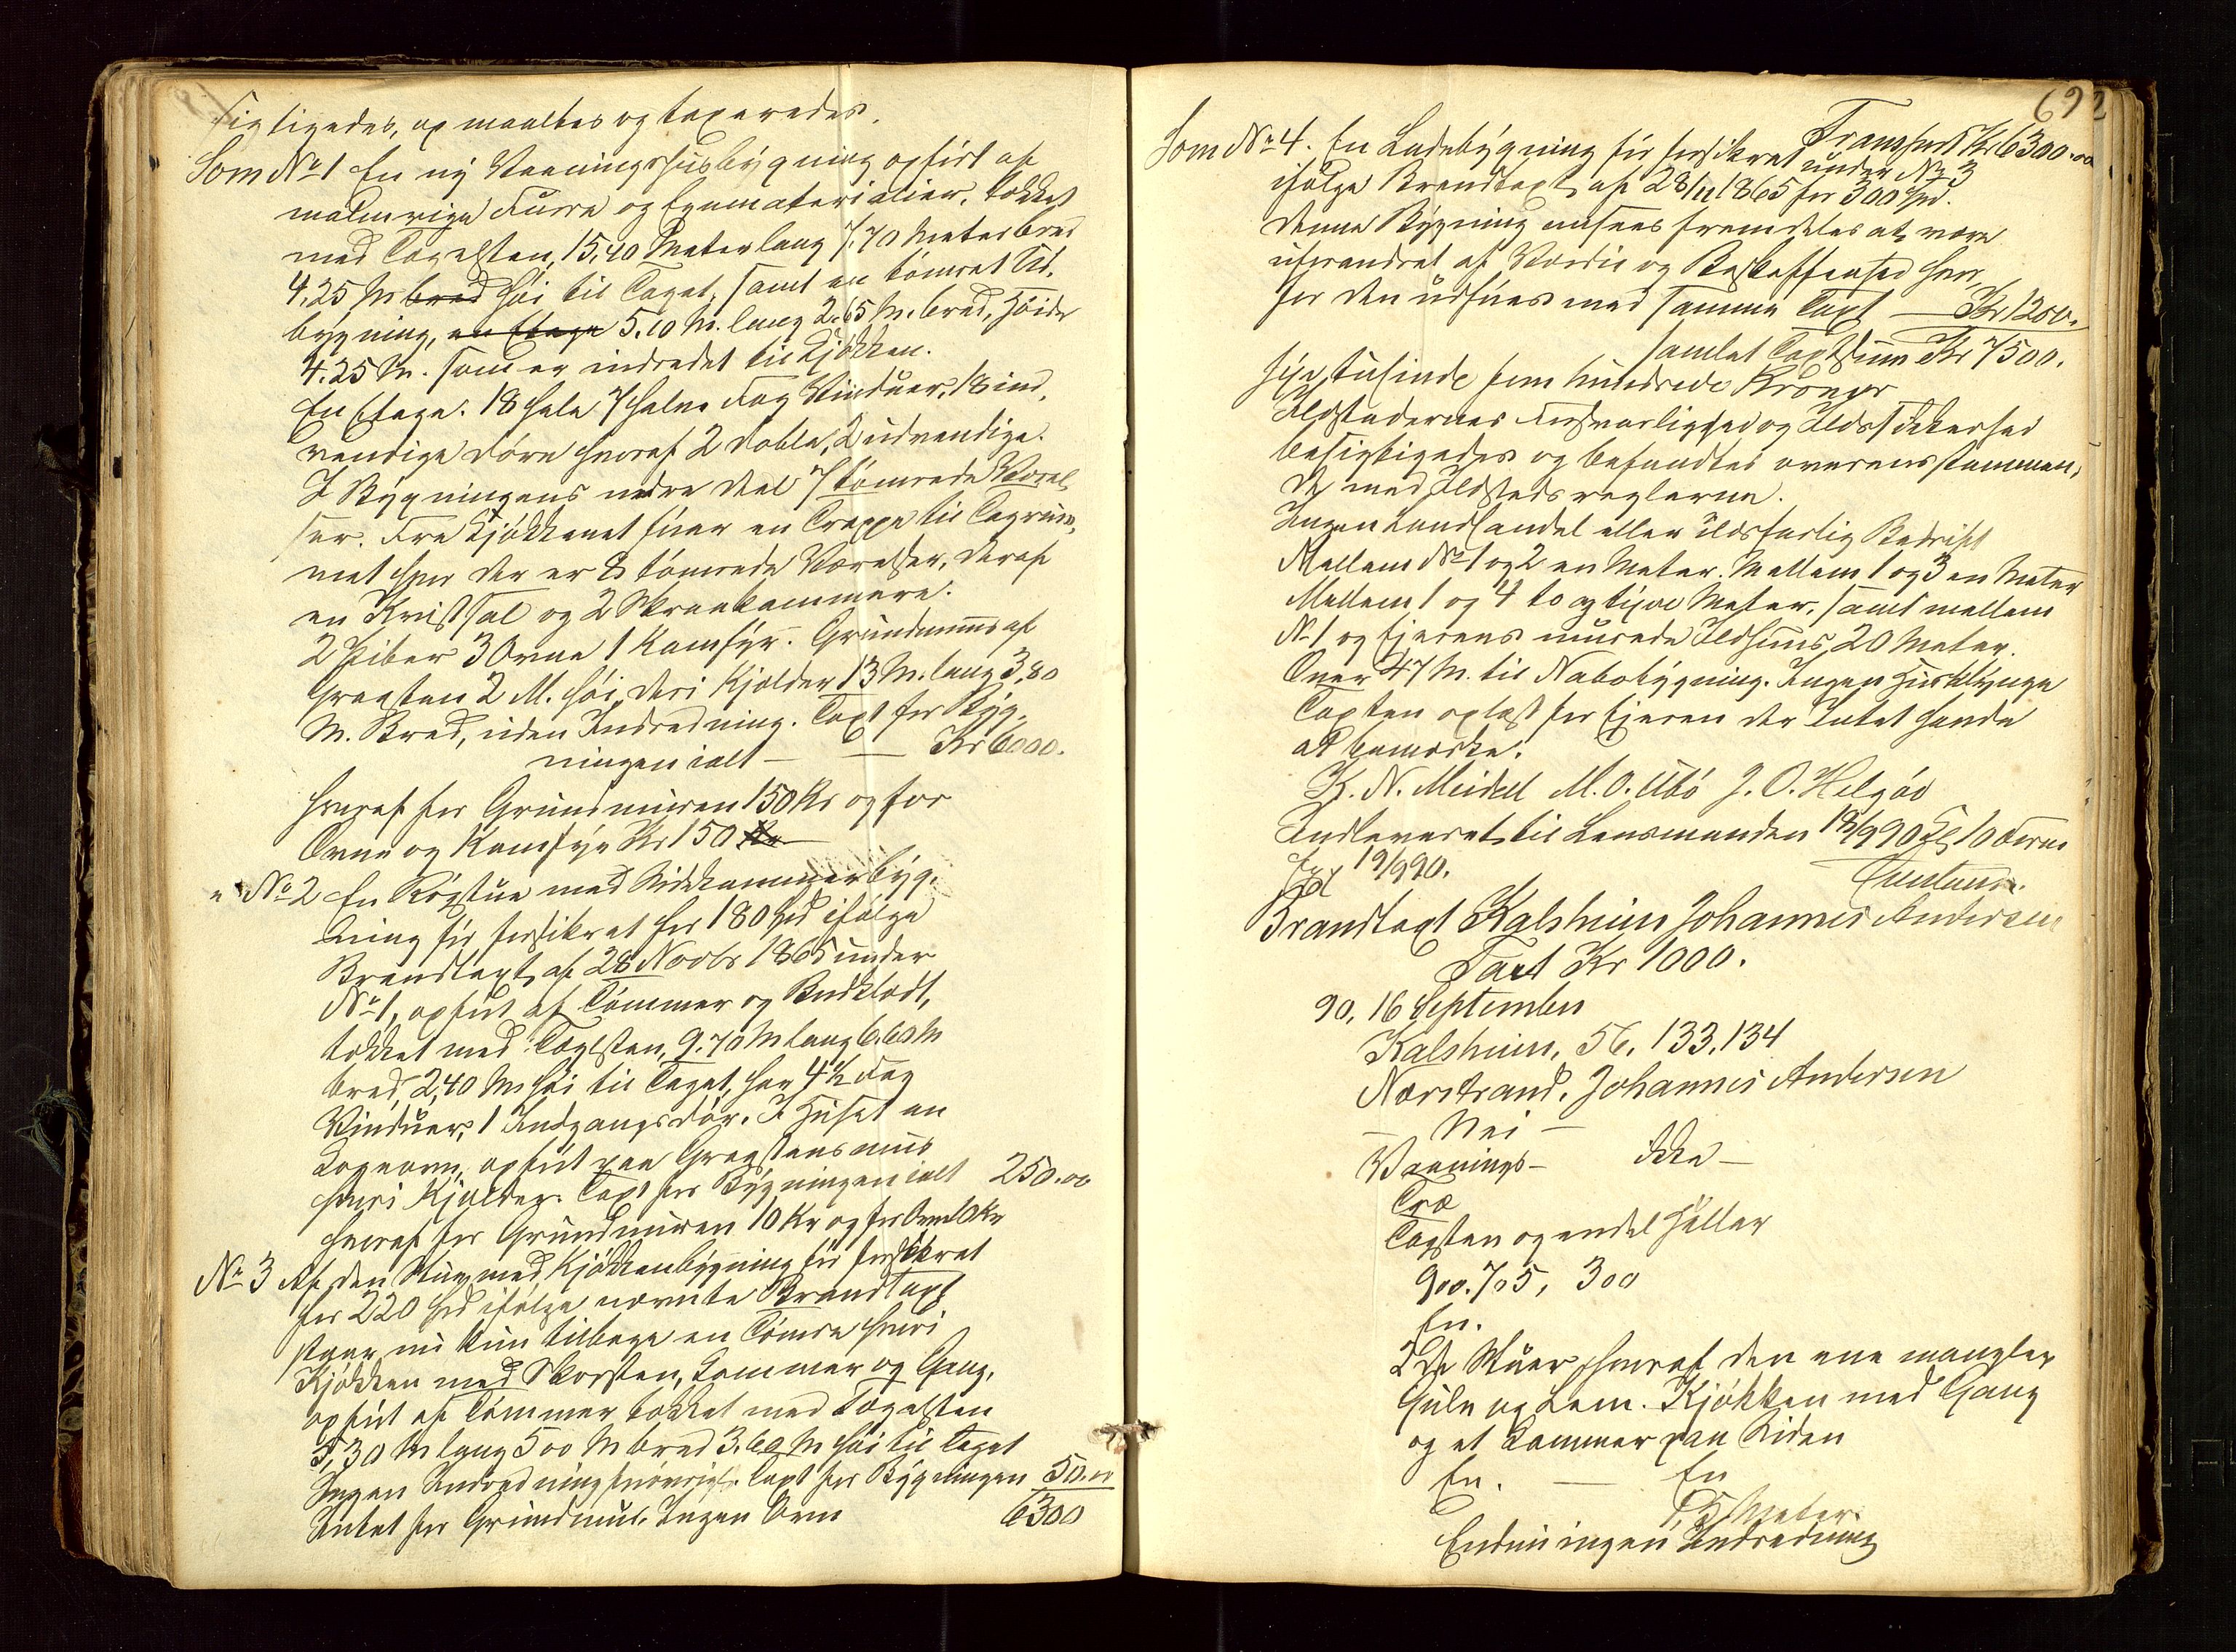 sigtigedes, op maaltes og taxeredes.
Som No 1 En ny Vaaningshusbygning opført af
malmrige Furre og Egematerialier, tækket
med Tagsten, 15,40 Meter lang 7.70 Meter bred
4,25 M bred høi til Taget, samt en tømret Ud-
bygning, en Etage 5.10 M. lang 2.65 M. bred, Høide
4.25 M. som er indredet til Kjøkken.
En Etage. 18 hele 7 halve Fag Vinduer, 18 ind-
vendige Døre hvoraf 2 doble, 2 udvendige.
I Bygningens nedre Deel 7 tømrede Værel-
ser. Fra Kjøkkenet fører en Trappe til Tagrum-
met hvor der er 8 tømrede Værelser, deraf
en Kvistsal og 2 Skraakammere.
2 Piber 3 Ovne 1 Komfyr. Grundmuus af
Graasten 2 M. høi, deri Kjelder 13 M. lang 3,80
M. Bred, uden Indredning. Taxt for Byg-
ningen ialt — — Kr 6000.
hvoraf for Grundmuren 150 Kr og for
Ovne og Komfyr Kr 150 Kr
" No 2 En Røgstue med Sidekammerbyg-
ning før forsikret for 180 Spd ifølge
Brandtaxt af 28 Novbr 1865 under
No 1, opført af Tømmer og Bordklædt,
tækket med Tagsten, 9.70 M lang 6.60 M
bred, 2,40 M høi til Taget, har 4 1/2 Fag
Vinduer, 1 Indgangsdør. I Huset en
Kogeovn, opført paa Graastensmuus
hvori Kjelder. Taxt for Bygningen ialt 250.00
hvoraf for Grundmuren 10 Kr og for Ovn 10 Kr
No 3 Af den Stue med Kjøkkenbygning før forsikret
for 220 Spd ifølge nævnte Brandtaxt
staar nu kun tilbage en Tømra hvori
Kjøkken med Skorsten, Kammer og Gang,
opført af Tømmer tækket med Tagsten
5,30 M lang 5 00 M bred 3.60 M høi til Taget
Ingen Indredning forøvrigt. Taxt for Bygningen 50.00
Intet for Grundmur. Ingen Ovn 6300
692
Transport Kr 6300.00
Som No 4. En Ladebygning før forsikret under No 3
ifølge Brandtaxt af 28/11 1865 for 300 Spd.
Denne Bygning ansees fremdeles at være
uforandret af Værdie og Beskaffenhed hvor-
for den udføres med samme Taxt — Kr 1200.
samlet Taxtsum Kr 7500.
syv tusinde fem hundrede Kroner
Ildstedernes Forsvarlighed og Ildssikkerhed
besigtigedes og befandtes overensstemmen-
de med Ildstedsreglerne.
Ingen Landhandel eller ildsfarlig Bedrift
Mellem No 1 og 2 en Meter. Mellem 1 og 3 en Meter
Mellem 1 og 4 to og tyve Meter, samt mellem
No 1 og Ejerens murede Ildhuus 20 Meter.
Over 47 M. til Nabobygning. Ingen Husklynge
Taxten oplæst for Ejeren der Intet havde
at bemærke.
K. N. Meidell M. O. Ubø J. O. Helgøe
Indleveret til Lensmanden 18/9 90 Kl 10 Form
Exp 19/9 90.
Brandtaxt Kalsheim Johannes Andersen
Taxt Kr 1000.
90, 16 September
Kalsheim, 56, 133, 134
Nærstrand. Johannes Andersen
— Nei —
Vaanings — ikke —
Træ
Tagsten og endel Heller
900. 705, 300
En.
2de Stuer, hvoraf den ene mangler
Gulv og Lem. Kjøkken med Gang
og et Kammer paa Siden
En. — En
1,5 Meter.
Endnu ingen Indredning